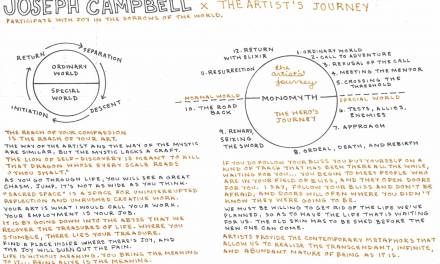 JOSEPH CAMPBELL x THE ARTIST'S JOURNEY
PARTICIPATE WITH JOY IN THE SORROWS OF THE WORLD.
RETURN
SEPARATION
ORDINARY
WORLD
SPECIAL
WORLD
INITIATION
DESCENT
12. RETURN
WITH ELIXIR
11. RESURRECTION
NORMAL WORLD
10. THE ROAD
BACK
9. REWARD,
SEIZING THE
SWORD
the
artist's
journey
MONOMYTH
THE HERO'S
JOURNEY
1. ORDINARY WORLD
2. CALL TO ADVENTURE
3. REFUSAL OF THE CALL
4. MEETING THE MENTOR
5. CROSSING THE
THRESHOLD
SPECIAL WORLD
6. TESTS, ALLIES,
ENEMIES
7. APPROACH
8. ORDEAL, DEATH, AND REBIRTH
THE REACH OF YOUR COMPASSION
IS THE REACH OF YOUR ART.
THE WAY OF THE ARTIST AND THE WAY OF THE MYSTIC
ARE SIMILAR, BUT THE MYSTIC LACKS A CRAFT.
THE LION OF SELF-DISCOVERY IS MEANT TO KILL
THAT DRAGON WHOSE EVERY SCALE READS
"THOU SHALT."
AS YOU GO THROUGH LIFE, YOU WILL SEE A GREAT
CHASM. JUMP. IT'S NOT AS WIDE AS YOU THINK.
"SACRED SPACE" IS A SPACE FOR UNINTERRUPTED
REFLECTION AND UNRUSHED CREATIVE WORK.
YOUR ART IS WHAT I WOULD CALL YOUR WORK.
YOUR EMPLOYMENT IS YOUR JOB.
IT IS BY GOING DOWN INTO THE ABYSS THAT WE
RECOVER THE TREASURES OF LIFE. WHERE YOU
STUMBLE, THERE LIES YOUR TREASURE.
FIND A PLACE INSIDE WHERE THERE'S JOY, AND
THE JOY WILL BURN OUT THE PAIN.
LIFE IS WITHOUT MEANING. YOU BRING THE MEANING
TO IT... BEING ALIVE IS THE MEANING.
IF YOU DO FOLLOW YOUR BLISS YOU PUT YOURSELF ON A
KIND OF TRACK THAT HAS BEEN THERE ALL THE WHILE,
WAITING FOR YOU... YOU BEGIN TO MEET PEOPLE WHO
ARE IN YOUR FIELD OF BLISS, AND THEY OPEN DOORS
FOR YOU. I SAY, FOLLOW YOUR BLISS AND DON'T BE
AFRAID, AND DOORS WILL OPEN WHERE YOU DIDN'T
KNOW THEY WERE GOING TO BE.
WE MUST BE WILLING TO GET RID OF THE LIFE WE'VE
PLANNED, SO AS TO HAVE THE LIFE THAT IS WAITING
FOR US. THE OLD SKIN HAS TO BE SHED BEFORE THE
NEW ONE CAN COME.
ARTISTS PROVIDE THE CONTEMPORARY METAPHORS THAT
ALLOW US TO REALISE THE TRANSCENDANT, INFINITE,
AND ABUNDANT NATURE OF BEING AS IT IS.